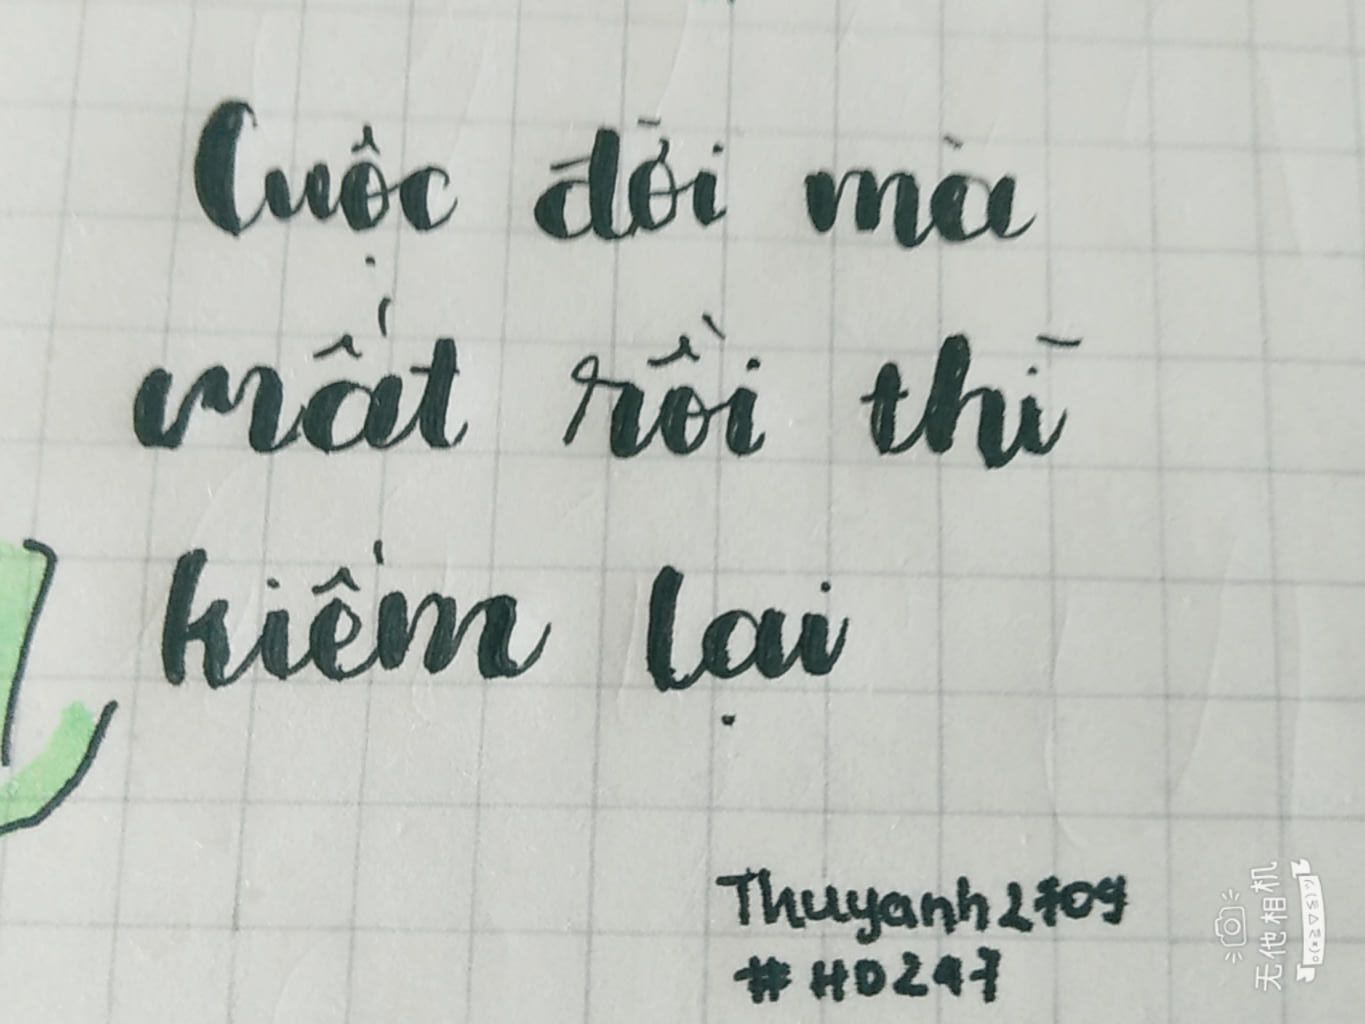 Cuộc đời mà
mất rồi thì
kiếm lại
Thuyanh2709
#HD247
无他相机